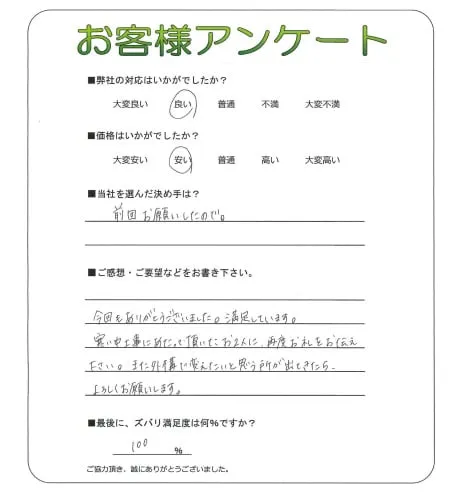 お客様アンケート
■弊社の対応はいかがでしたか？
大変良い 良い 普通 不満 大変不満
■価格はいかがでしたか？
大変安い 安い 普通 高い 大変高い
■当社を選んだ決め手は？
前回お願いしたので。
■ご感想・ご要望などをお書き下さい。
今回もありがとうございました。満足しています。
寒い中工事にあたって頂いたお2人に、再度お礼をお伝え
下さい。また外構で変えたいと思う所が出てきたら、
よろしくお願いします。
■最後に、ズバリ満足度は何%ですか？
100 %
ご協力頂き、誠にありがとうございました。